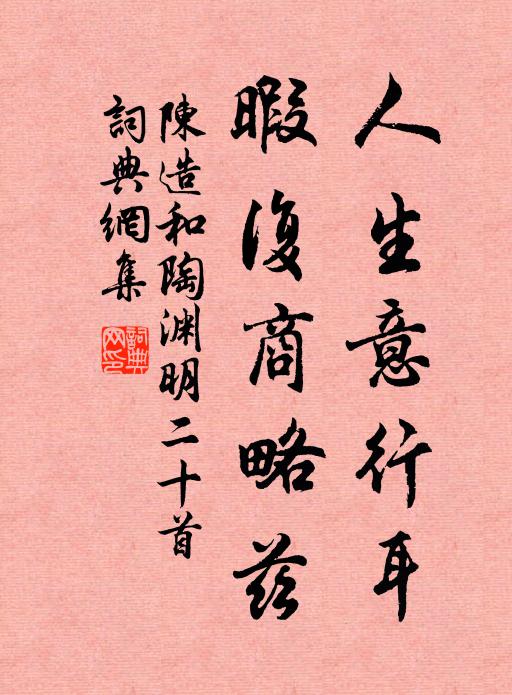 人生意行耳
暇復商略茲
陳造和陶渊明二十首
詞典網集
詞典網印